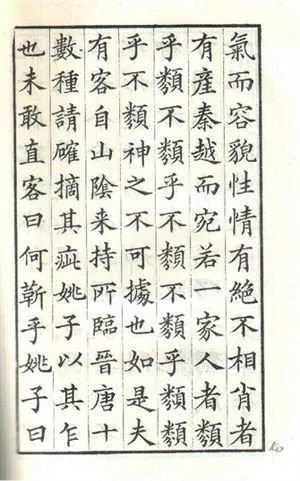 氣而容貌性情有絕不相肖者
有產秦越而宛若一家人者類
乎類不類乎不類不類乎類類
乎不類神之不可據也如是夫
有客自山陰来持所臨晉唐十
數種請確摘其疵姚子以其乍
也未敢直客曰何靳乎姚子曰